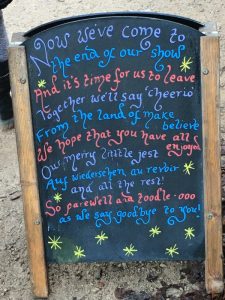 Now we've come to
the end of our show
And it's time for us to leave
Together we'll say 'cheerio'
From the land of make
believe
We hope that you have all
enjoyed
Our merry little jest
Auf wiedersehen, au revoir
and all the rest!
So farewell and toodle-ooo
.... as we say goodbye to you!